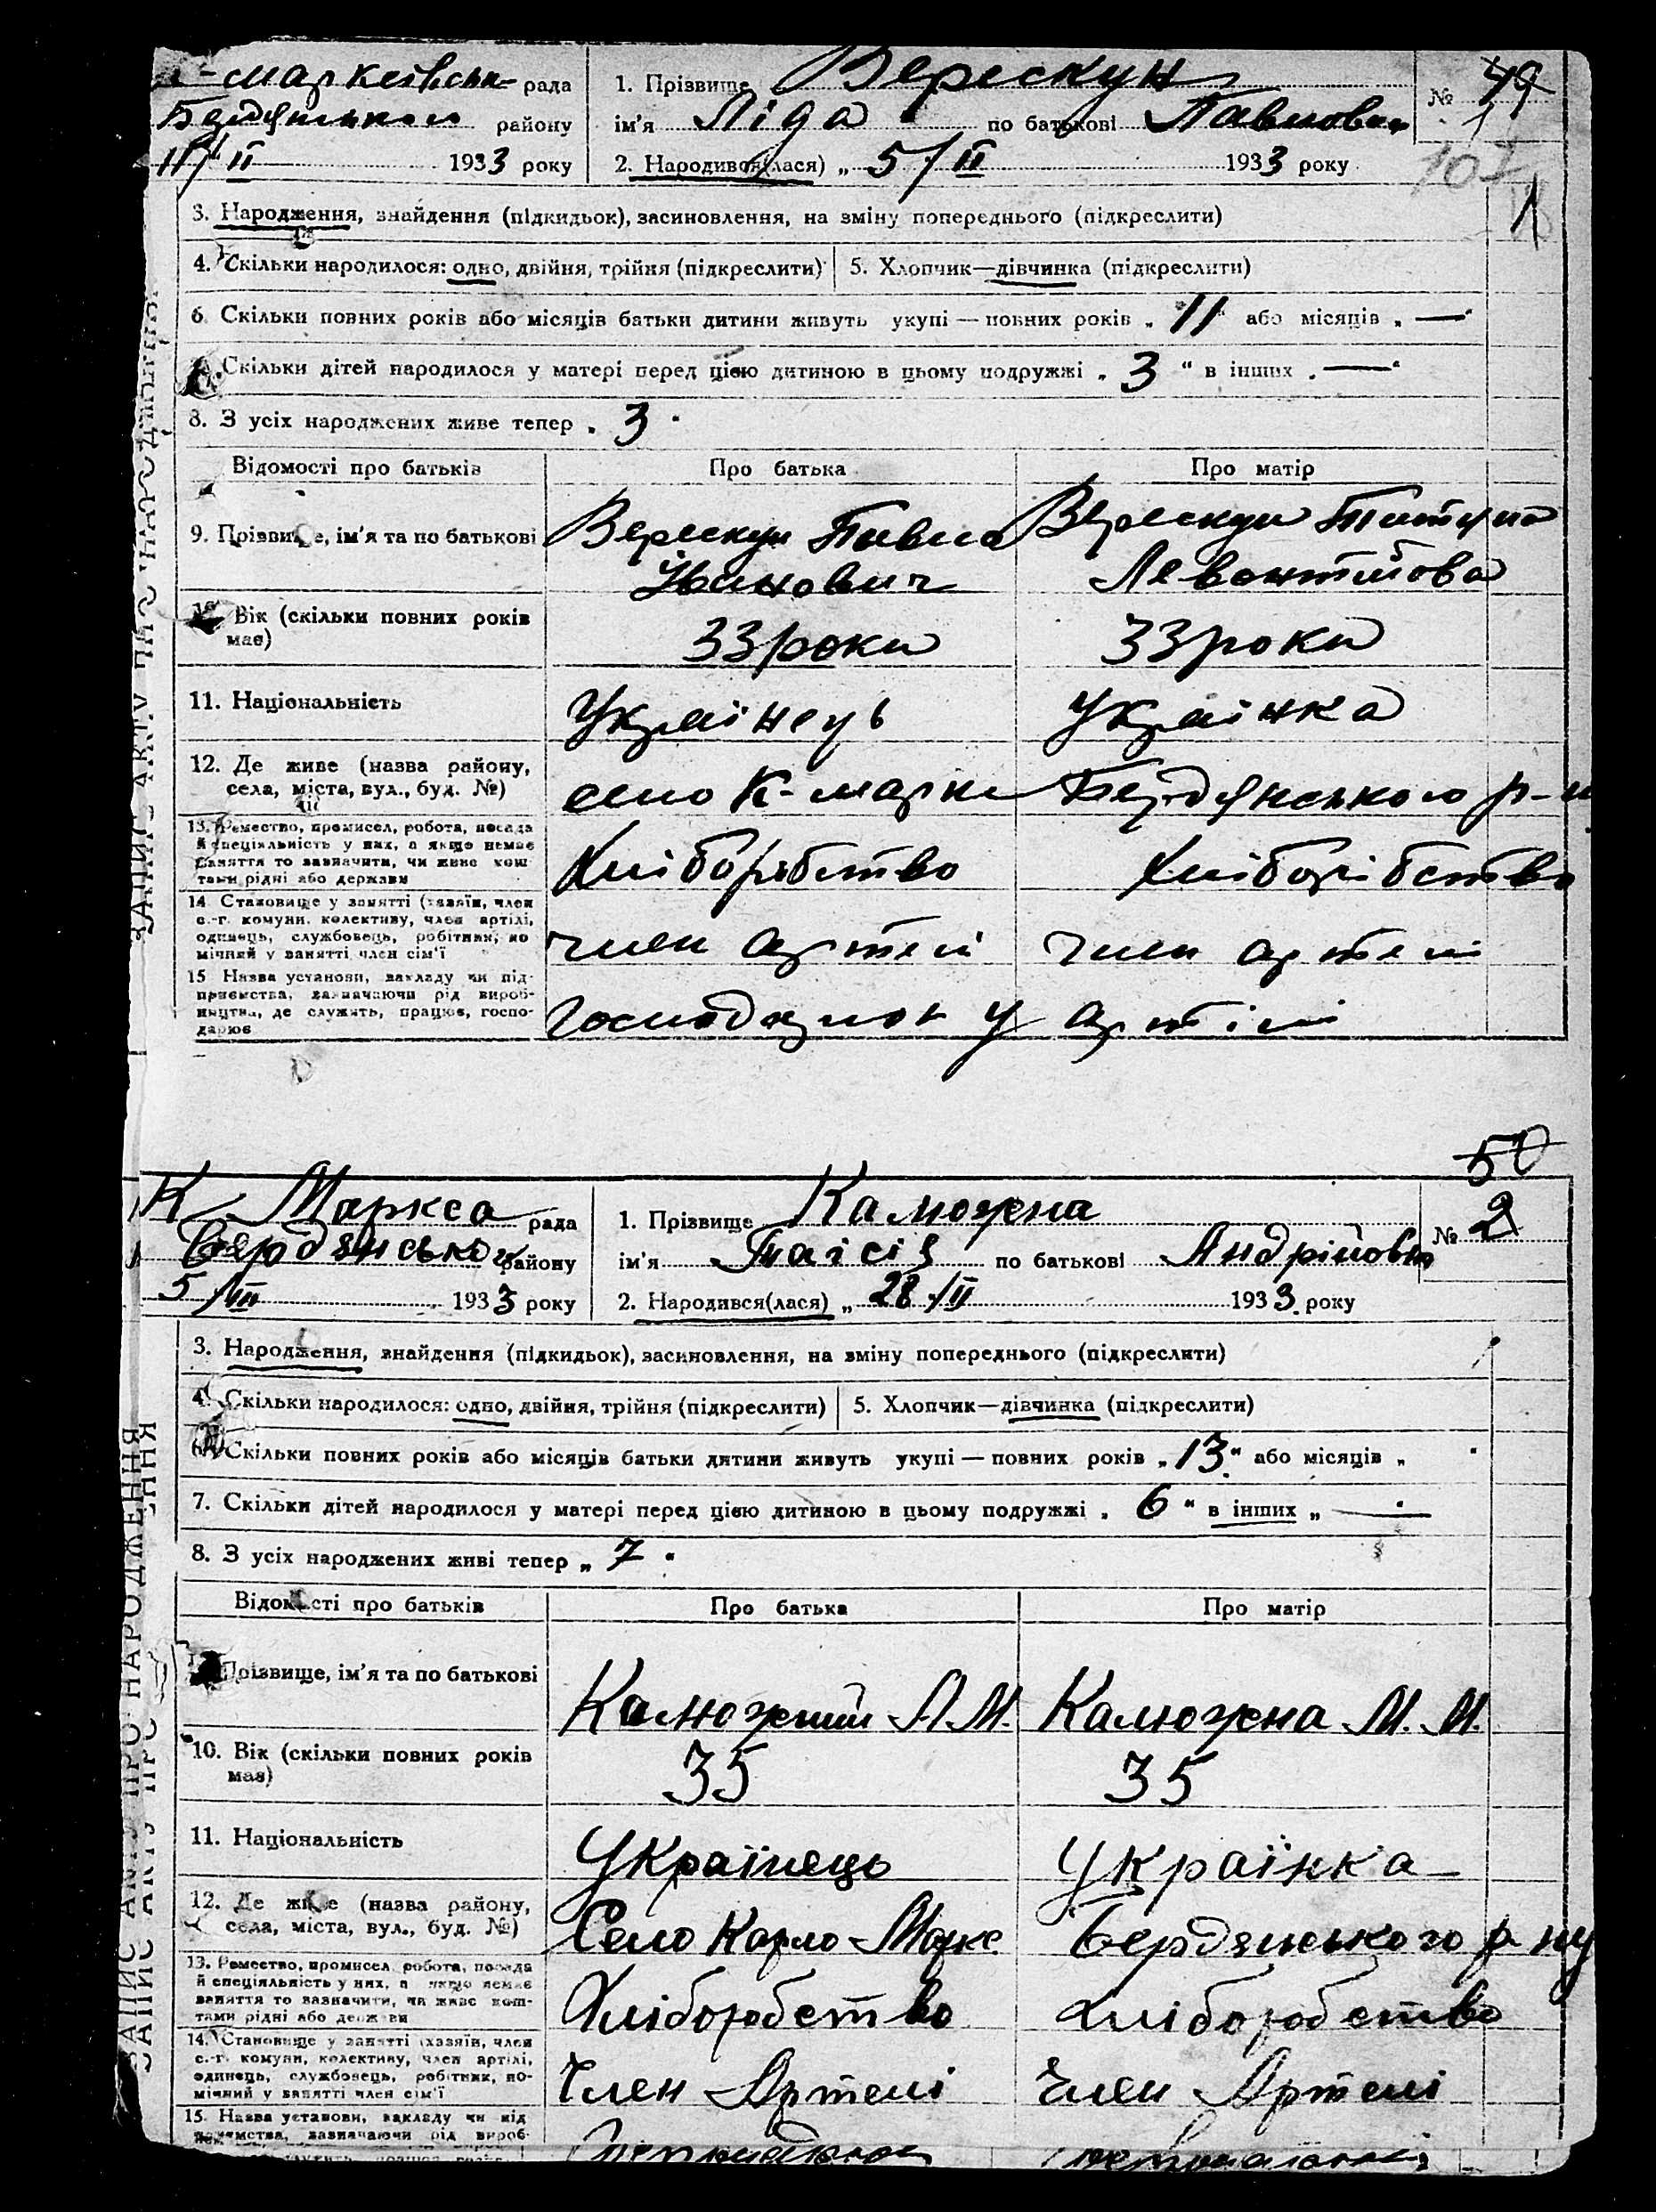 -Марксівська рада
Бердянського району
11/II 1933 року
1. Прізвище Верескун
ім'я Ліда по батькові Павловна
2. Народився(лася) „ 5/II 1933 року
№ 49
1
107
1
3. Народження, знайдення (підкидьок), засиновлення, на зміну попереднього (підкреслити)
4. Скільки народилося: одно, двійня, трійня (підкреслити) 5. Хлопчик—дівчинка (підкреслити)
6. Скільки повних років або місяців батьки дитини живуть укупі — повних років „ 11 " або місяців „ — "
Скільки дітей народилося у матері перед цією дитиною в цьому подружжі „ 3 " в інших „ — "
8. З усіх народжених живе тепер „ 3 "
Відомості про батьків Про батька Про матір
9. Прізвище, ім'я та по батькові
Верескун Павла Іванович
Верескун Левонтійова
10. Вік (скільки повних років має)
33 роки 33 роки
11. Національність
Українець Українка
12. Де живе (назва району, села, міста, вул., буд. №)
село К-Маркс Бердянського р-н
13. Ремество, промисел, робота, посада й спеціяльність у них, а якщо немає заняття то зазначити, чи живе кош-тами рідні або держави
Хліборобство Хліборібство
14. Становище у занятті (хазяїн, член с.-г. комуни, колективу, член артілі, одинець, службовець, робітник, по-мічний у занятті член сім'ї
член артелі член артелі
15. Назва установи, закладу чи під-приємства, зазначаючи рід вироб-ництва, де служить, працює, госпо-дарює
у артілі
ЗАПИС АКТУ ПРО НАРОДЖЕННЯ
50
К Маркса рада
Бердянського району
5/III 1933 року
1. Прізвище Калюжна
ім'я Таїсія по батькові Андрійовна
2. Народився(лася) „ 28/II 1933 року
№ 2
3. Народження, знайдення (підкидьок), засиновлення, на зміну попереднього (підкреслити)
4. Скільки народилося: одно, двійня, трійня (підкреслити) 5. Хлопчик—дівчинка (підкреслити)
6. Скільки повних років або місяців батьки дитини живуть укупі — повних років „ 13 " або місяців „ "
7. Скільки дітей народилося у матері перед цією дитиною в цьому подружжі „ 6 " в інших „ — "
8. З усіх народжених живі тепер „ 7 "
Відомості про батьків Про батька Про матір
Прізвище, ім'я та по батькові
Калюжний А.М. Калюжна М.М.
10. Вік (скільки повних років має)
35 35
11. Національність
Українець Українка
12. Де живе (назва району, села, міста, вул., буд. №)
Село Карло-Маркс Бердянського р-ну
13. Ремество, промисел, робота, посада й спеціяльність у них, а якщо немає заняття то зазначити, чи живе кош-тами рідні або держави
Хліборобство Хліборобство
14. Становище у занятті (хазяїн, член с.-г. комуни, колективу, член артілі, одинець, службовець, робітник, по-мічний у занятті член сім'ї
Член Артелі Член Артелі
15. Назва установи, закладу чи під-приємства, зазначаючи рід вироб-
ЗАПИС АКТУ ПРО НАРОДЖЕННЯ